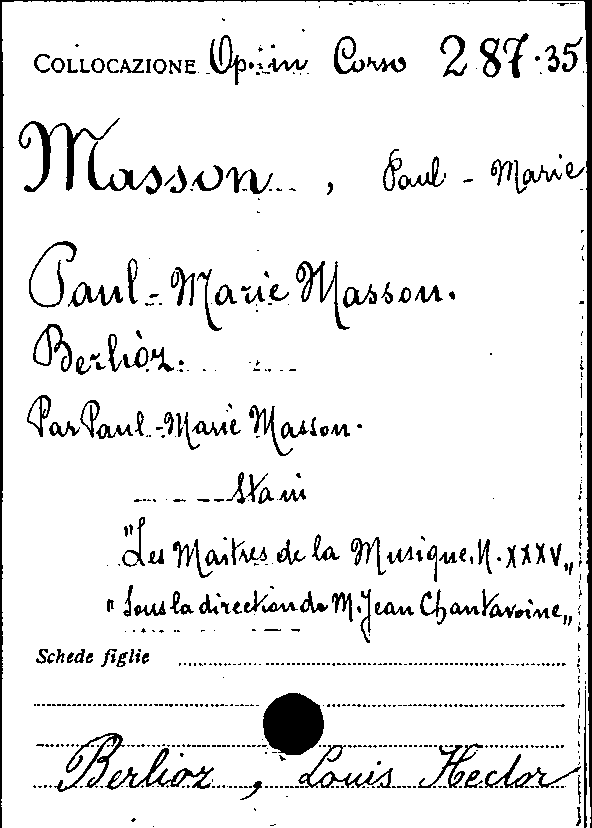 COLLOCAZIONE Op. in Corso 287.35
Masson, Paul-Marie
Paul-Marie Masson.
Berlioz.
Par Paul-Marie Masson.
Sta in
"Les Maitres de la Musique. N. XXXV„
"Sous la direction de M. Jean Chantavoine„
Schede figlie
Berlioz, Louis Hector